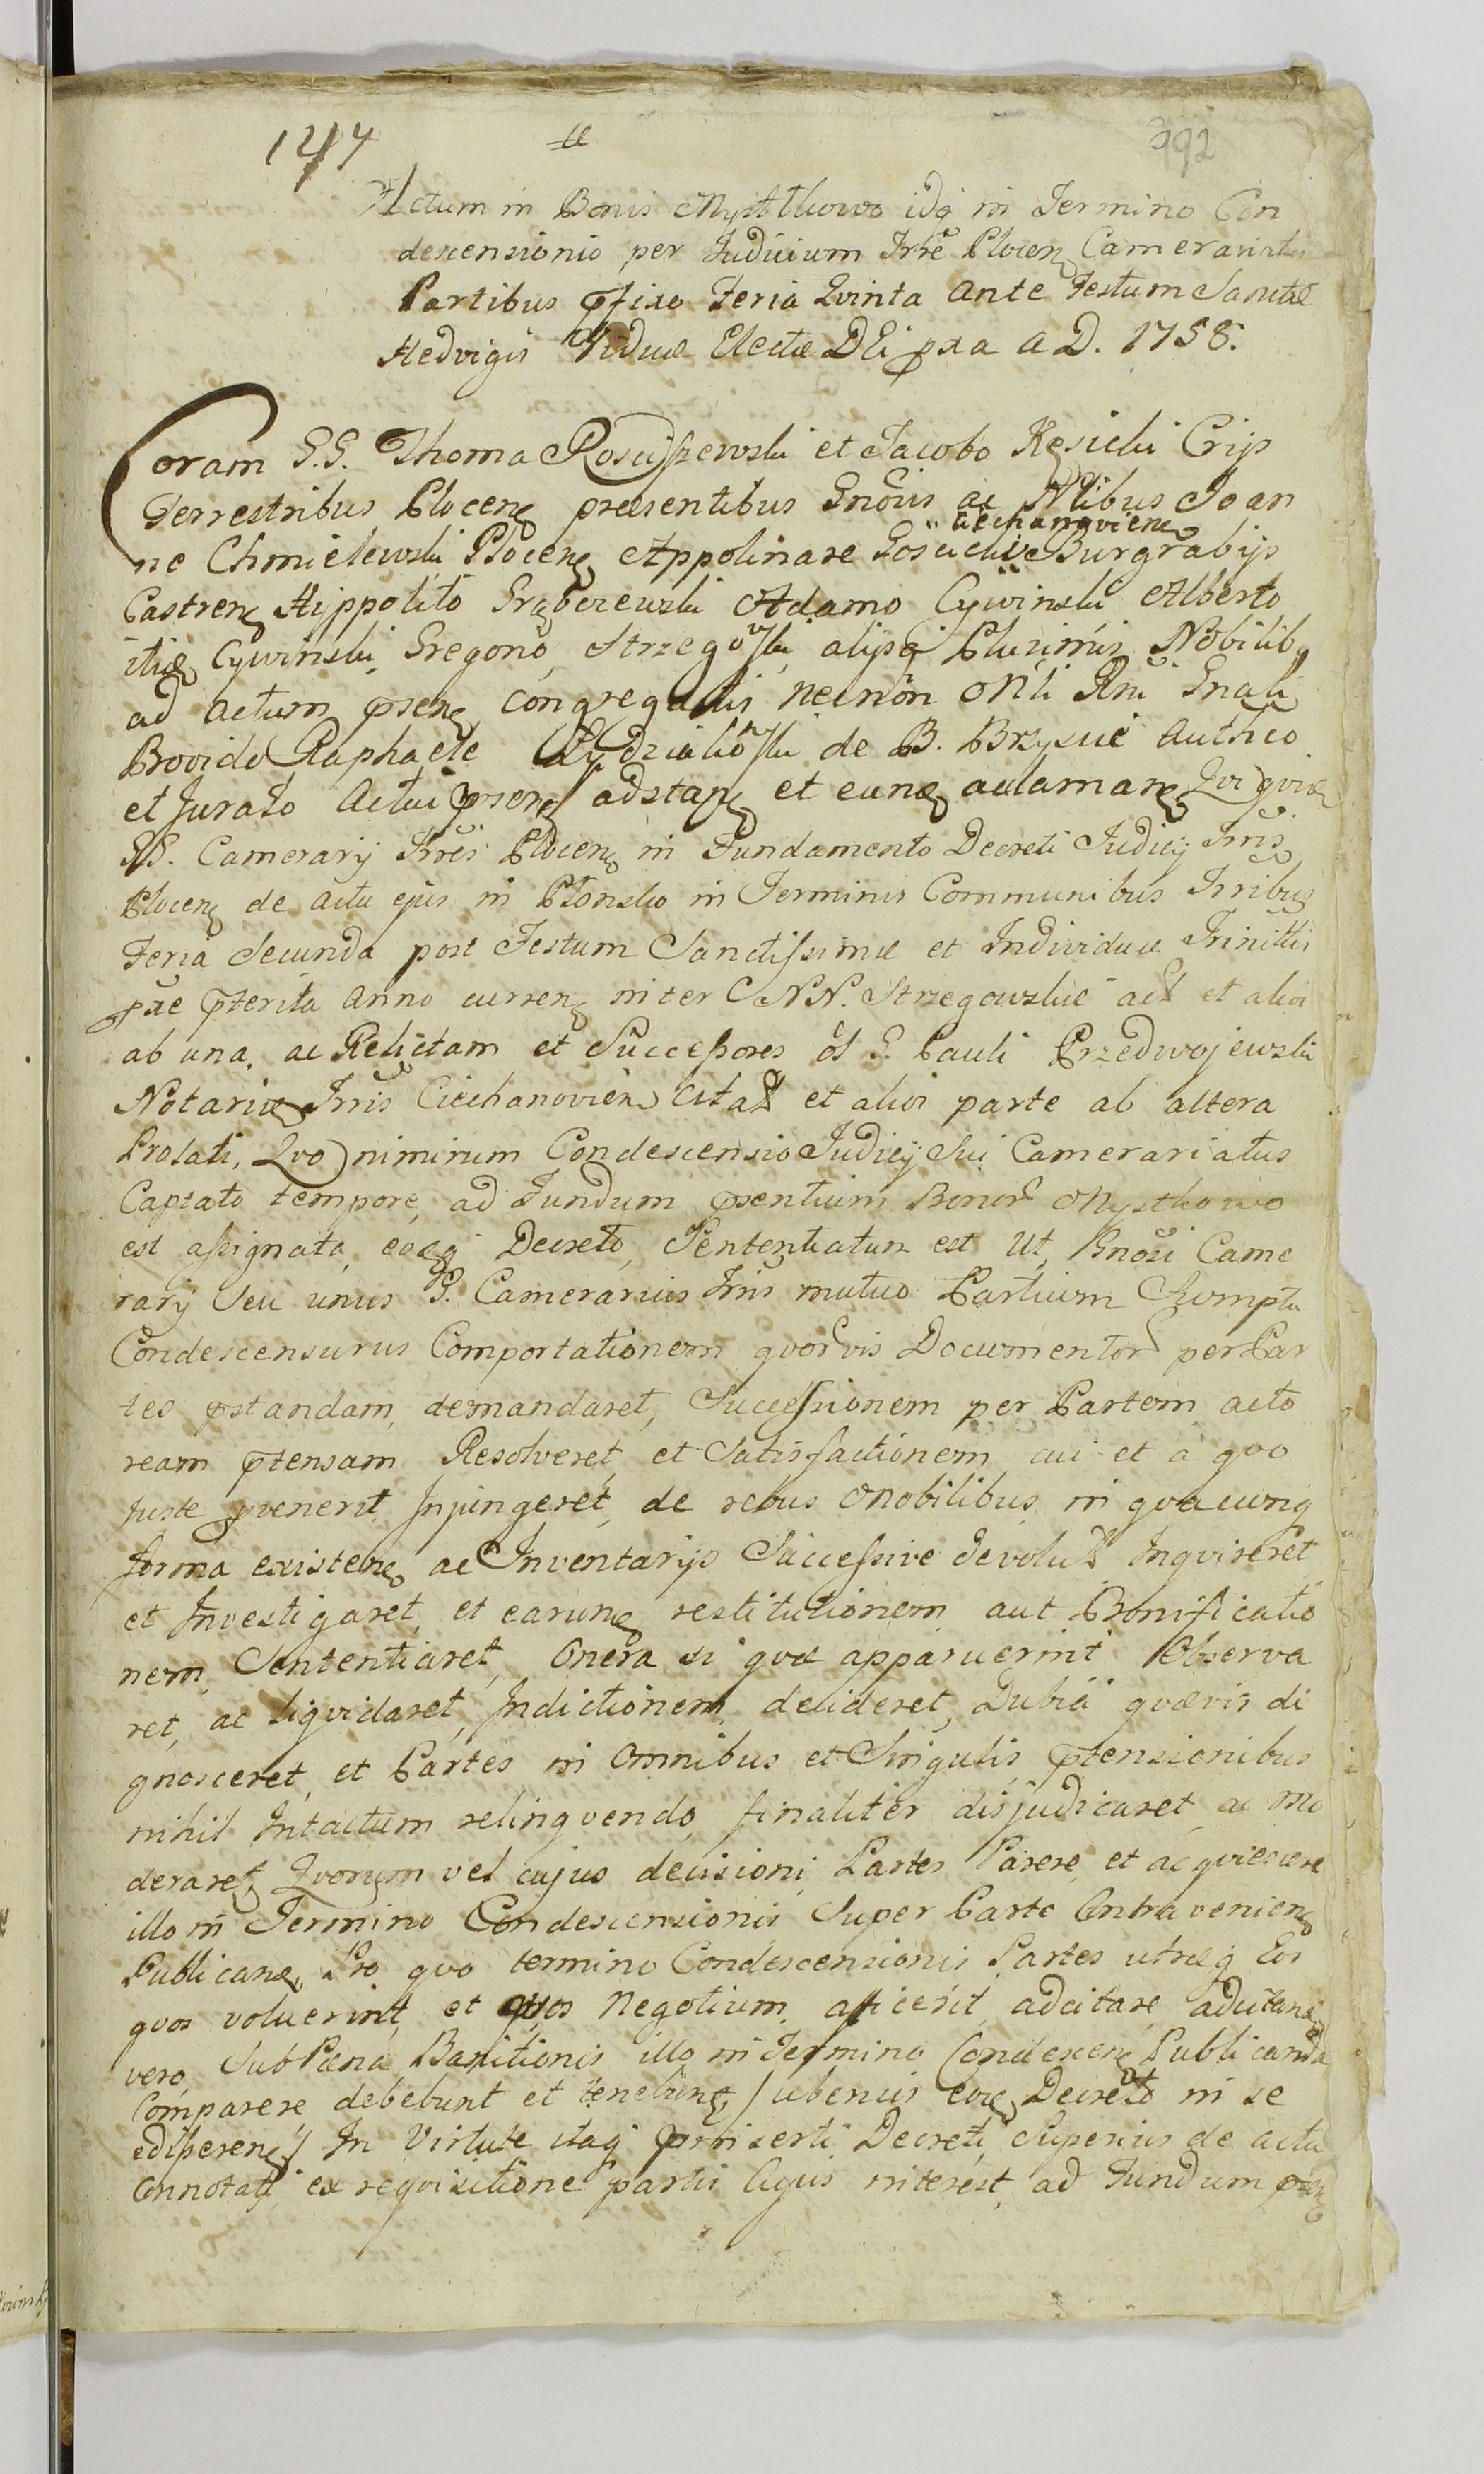 147
992
Actum in Bonis Mystkowo idq in Termino Con
descensionis per Judicium Trre Plocen Camerariatus
Partibus pfixo Feria Qvinta Ante Festum Sanctæ
Hedvigis Viduæ Electæ DEi pxa A D. 1758.
Coram G.G. Thoma Rosciszewski et Jacobo Kęsicki Crijs
Terrestribus Plocen præsentibus Gnosis ac Nlibus Joan
ne Chmielewski Plocen Appolinare Gosticki Ciechanovien Burgrabijs
Castren Hippolito Grąbczewski Adamo Cywinski Alberto
itid Cywinski Gregorio Strzegowski alijsq Plurimis Nobilibq
ad Actum psen congregatis necnon Mli Rni Gnali
Provido Raphaele de B. Brzyscie Authco
et Jurato Actui psen adstan et eund aclaman Qvi qvid
GG. Camerarij Trres Plocen in Fundamento Decreti Judicij Trris
Plocen de actu ejus in Płonsko in Terminis Communibus Trribus
Feria Secunda post Festum Sanctissimæ et Individuæ Trinittis
pxe pterita Anno curren inter NN. Strzegowskie act et alios
ab una, ac Relictam et Successores ol G. Pauli Przedwojewski
Notarij Trris Ciechanovien Citat et alios parte ab altera
Prolati, Qvo nimirum Condescensio Judicij Sui Camerariatus
Captato tempore ad Fundum psentium Bonor Mystkowo
est assignata, eoq Decreto Sententiatum est Ut, Gnosi Came
rarij Seu unus G. Camerarius Trris mutuo Partium Sumptu
Condescensurus Comportationem qvorvis Documentor per Par
tes pstandam demandaret, Successionem per Partem acto
ream ptensam Resolveret, et Satisfactionem cui et a qvo
juste pvenerit Injungeret, de rebus Mobilibus in qvacunq
forma existen ac Inventarijs Successive devolut Inqvireret
et Investigaret, et earund restitutionem aut Bonificatio
nem Sententiaret, Onera si qvæ apparuerint Observa
ret, ac liqvidaret, Indictionem decideret, Dubia qvævis di
gnosceret, et Partes in Omnibus et Singulis ptensionibus
nihil Intactum relinqvendo finaliter disjudicaret, ac Mo
deraret, Qvorum vel cujus decisioni Partes Parere et acqviescere
illo in Termino Condescensionis Super Parte Contravenien
Publican, Pro qvo termino Condescensionis Partes utræq Eos
qvos voluerint, et qvos Negotium afficerit adcitare adcitani
vero Sub Pæna Banitionis illo in Termino Condescen Publicanda
Comparere debebunt et tenebunt, Decreto in se
edisseren/ In Virtute itaq prinserti Decreti Superius de actu
Connotati ex reqvisitione partis Cujus interest, ad Fundum psen